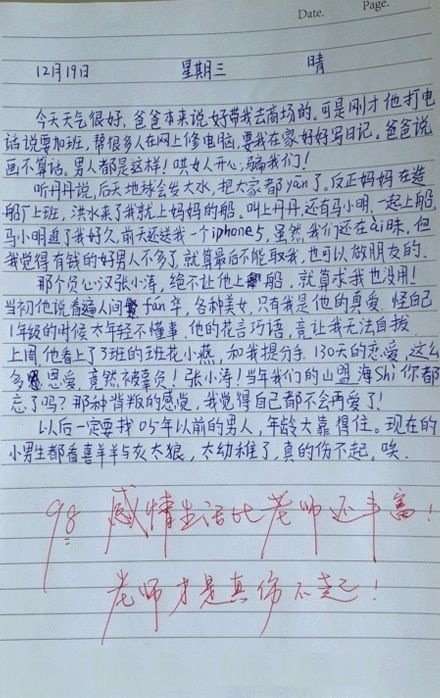 Date.    Page.
12月19日    星期三    晴
今天天气很好，爸爸本来说好带我去商场的。可是刚才他打电
话说要加班，帮很多人在网上修电脑，要我在家好好写日记。爸爸说
画不算话。男人都是这样！哄女人开心，骗我们！
听丹丹说，后天地球会发大水，把大家都yān了。反正妈妈在造
船厂上班，洪水来了我就上妈妈的船。叫上丹丹，还有马小明，一起上船，
马小明追了我好久，前天还送我一个iphone5，虽然我们还在ài昧，但
我觉得有钱的好男人不多了，就算最后不能取我，也可以做朋友的。
那个负心汉张小涛，绝不让他上船，就算求我也没用！
当初他说看遍人间fán华，各种美女，只有我是他的真爱，怪自己
1年级的时候太年轻不懂事，他的花言巧语，竟让我无法自拔
上周他看上了3班的班花小燕，和我提分手，130天的恋爱，这么
多恩爱，竟然被辜负！张小涛！当年我们的山盟海Shi你都
忘了吗？那种背叛的感觉，我觉得自己都不会再爱了！
以后一定要找05年以前的男人，年龄大靠得住。现在的
小男生都看喜羊羊与灰太狼，太幼稚了，真的伤不起，唉.
98 感情生活比老师还丰富！
老师才是真伤不起！